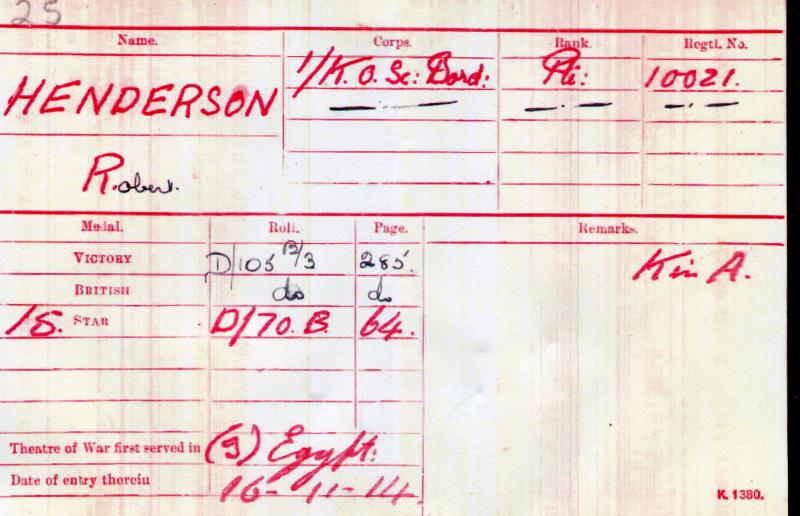 25
Name. Corps. Rank. Regtl. No.
HENDERSON 1/K.O.Sc: Bord: Pte: 10021.
Robert.
Medal. Roll. Page. Remarks.
VICTORY D/105 B/3 285. Kin A.
BRITISH do do
15. STAR D/70.B. 64.
Theatre of War first served in (3) Egypt:
Date of entry therein 16-11-14.
K. 1380.